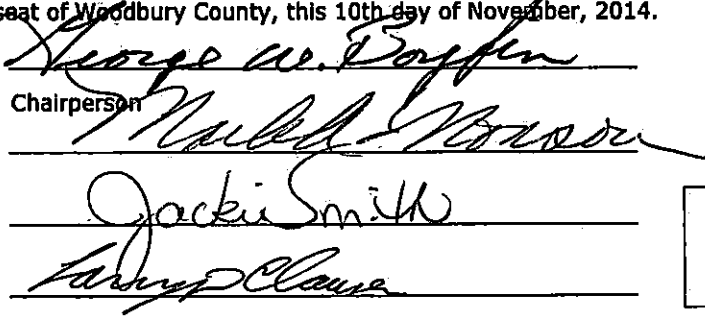 seat of Woodbury County, this 10th day of November, 2014.
George W. Boykin
Chairperson
Monson
Jackie Smith
Larry D Clausen